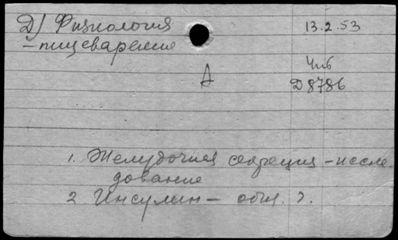 Д) Физиология
- пищеварение
13.2.53
Чит
Д8786
А
1. Желудочная секреция - иссле
дование
2 Инсулин -